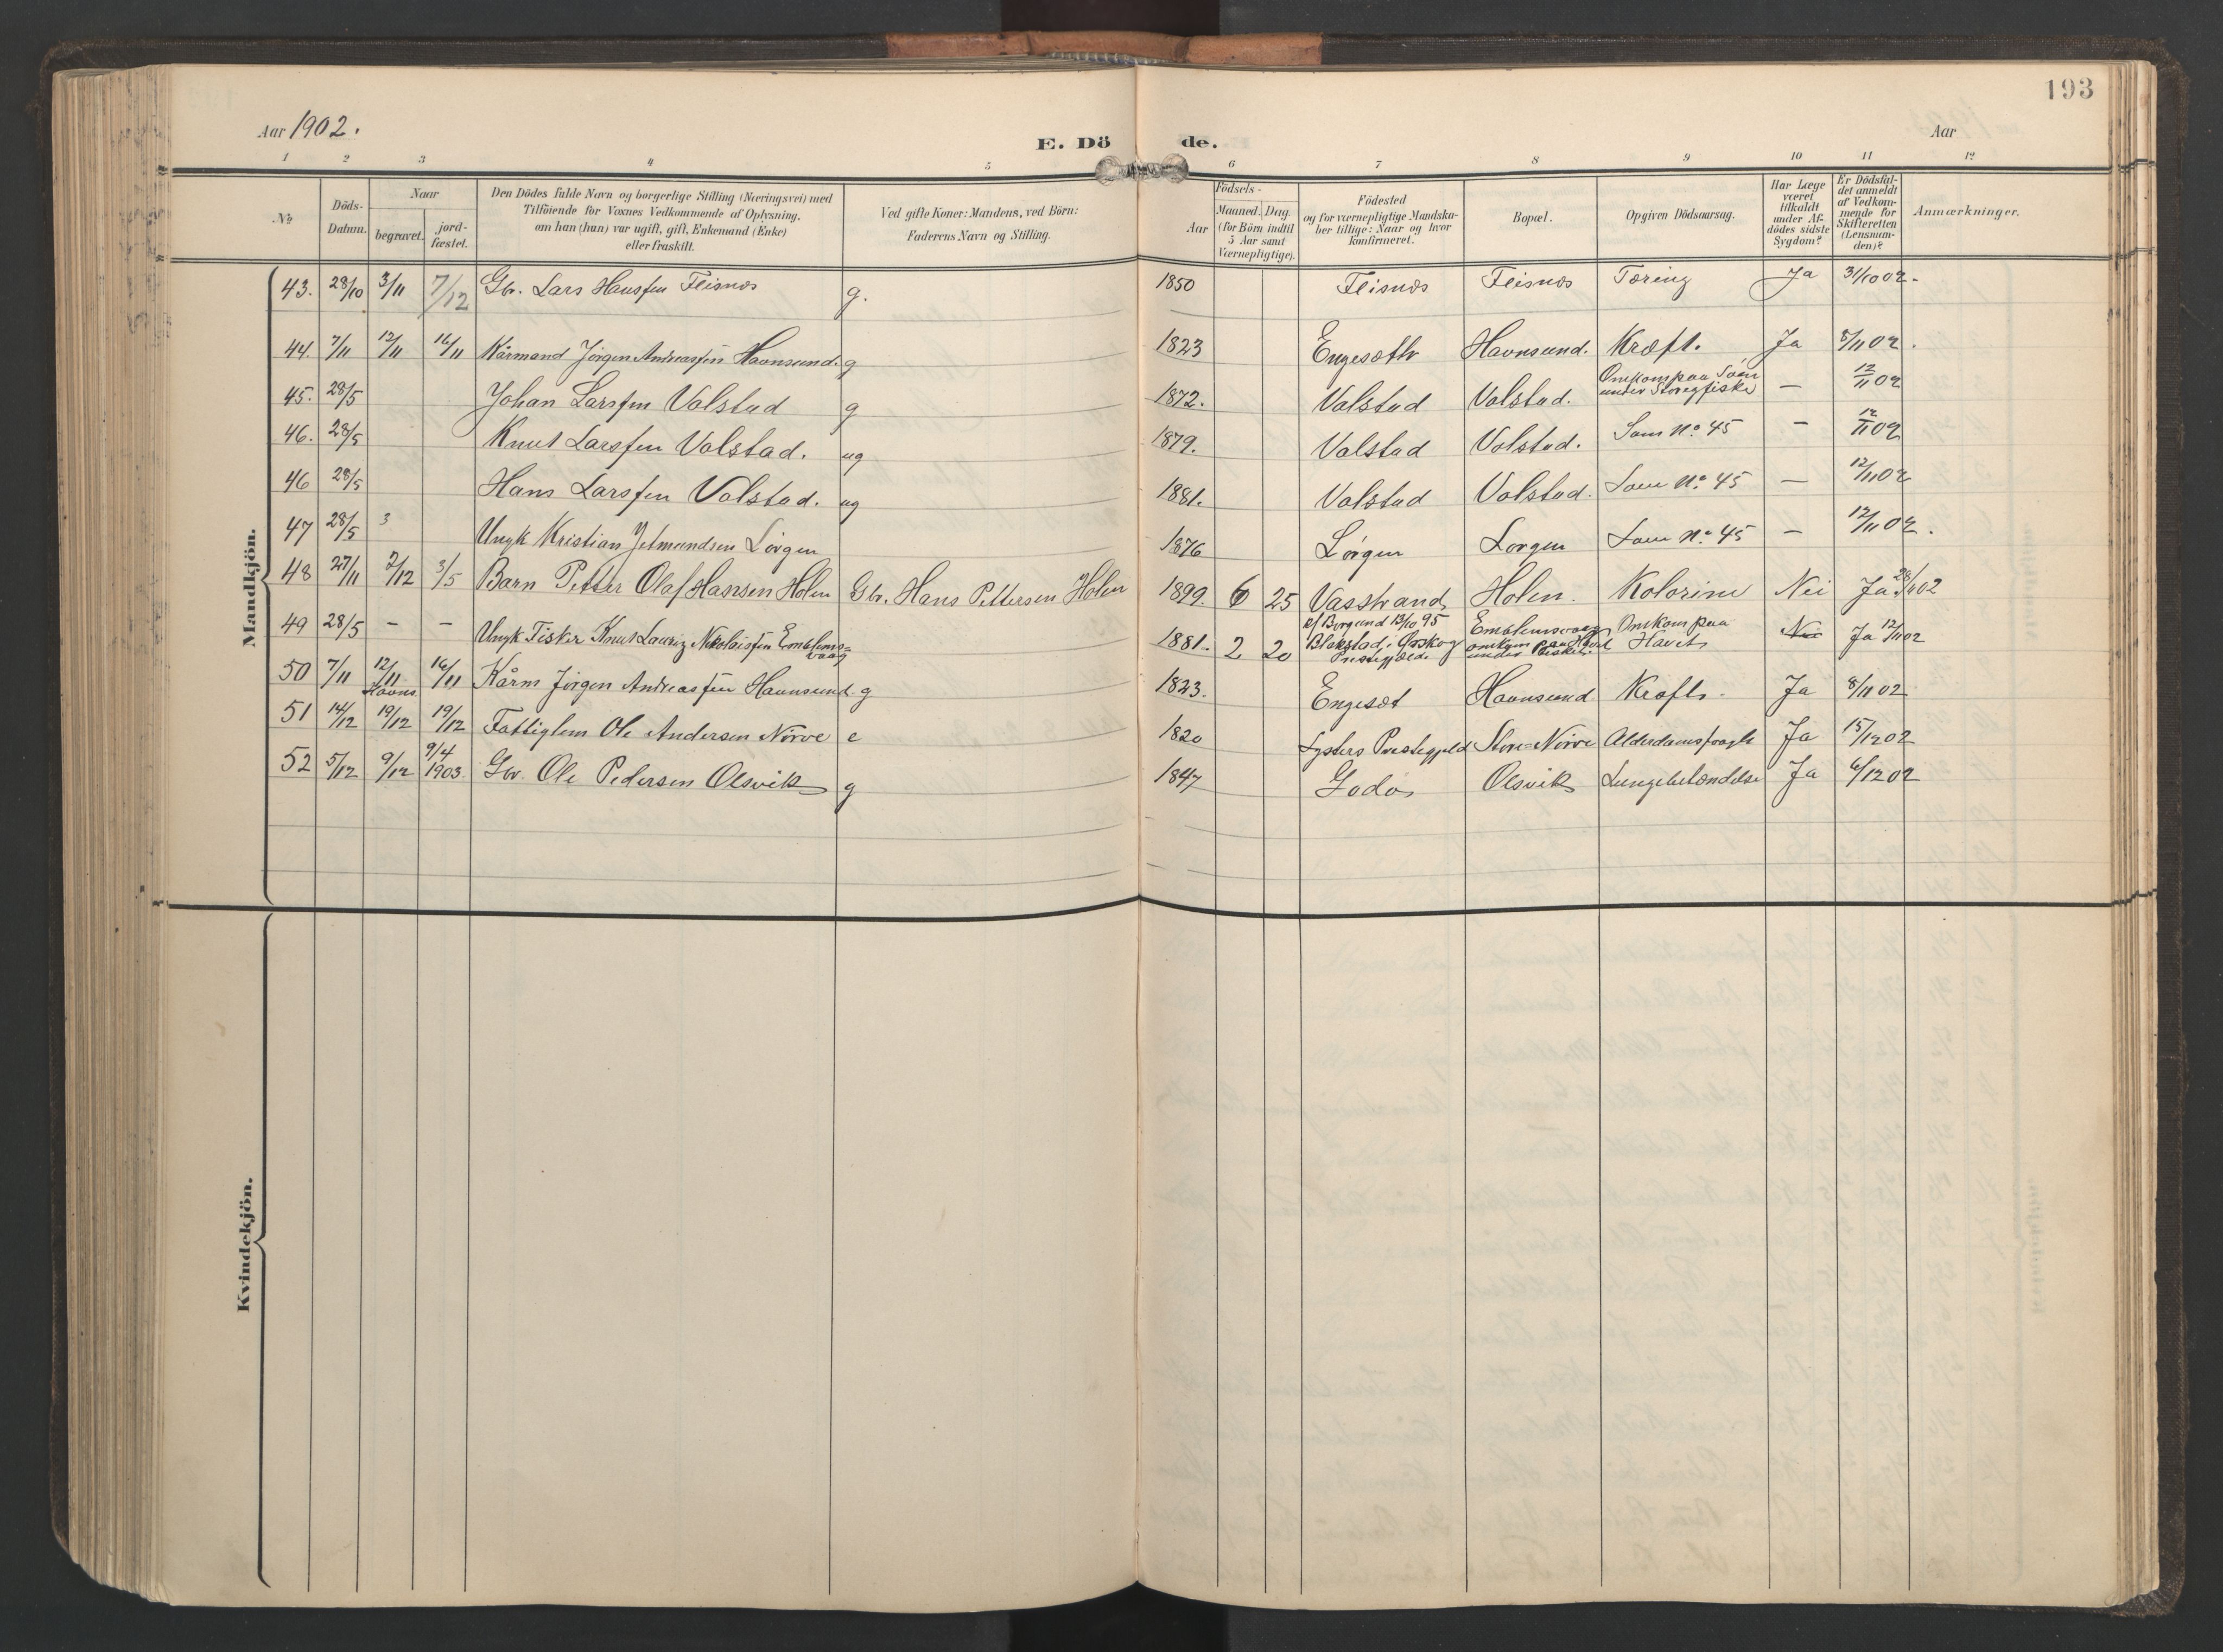 193
Aar 1902.
E. Dö de.
Aar
1 2 3 4 5 6 7 8 9 10 11 12
No
Döds-Datum.
Naar
begravet.
jord-fæstet.
Den Dödes fulde Navn og borgerlige Stilling (Næringsvei) med
Tilföiende for Voxnes Vedkommende af Oplysning,
om han (hun) var ugift, gift, Enkemand (Enke)
eller fraskilt.
Ved gifte Koner: Mandens, ved Börn:
Faderens Navn og Stilling.
Födsels-
Aar
Maaned. Dag.
(for Börn indtil
5 Aar samt
Værnepligtige).
Födested
og for værnepligtige Mandska-
ber tillige: Naar og hvor
konfirmeret.
Bopæl.
Opgiven Dödsaarsag.
Har Læge
været
tilkaldt
under Af-
dödes sidste
Sygdom?
Er Dödsfal-
det anmeldt
af Vedkom-
mende for
Skifteretten
(Lensman-
den)?
Anmærkninger.
Mandkjön.
43. 28/10 3/11 7/12 Gbr. Lars Hansen Fleisnes g. 1850 Fleisnes Fleisnes Tæring Ja 31/10 02.
44. 7/11 12/11 16/11 Kårmand Jörgen Andreassen Havnsund. g 1823 Engesæth Havnsund. Kræft. Ja 8/11 02.
45. 28/5 Johan Larssen Valstad g 1872. Valstad Valstad. Omkom paa Søen
under Storegfiske — 12/11 02
46. 28/5 Knut Larssen Valstad. ug 1879. Valstad Valstad. Som No. 45 — 12/11 02
46 28/5 Hans Larssen Valstad. ug 1881. Valstad Valstad. Som No. 45 — 12/11 02
47 28/5 3 Ungk Kristian Jetmundsen Lörgen 1876 Lörgen Lorgen Som No. 45 — 12/11 02.
48 27/11 2/12 3/5 Barn Petter Olaf Hansen Holen Gbr. Hans Pettersen Holen 1899. 6 25 Vasstrand Holen. Kolorine Nei Ja 28/11 02
49 28/5 — — Ungk Fisker Knut Lauriz Nikolaissen Emblems=
vaag 1881. 2 20 k/ Borgund 13/10 95
Blakstad i Ørskog
Prestegjæld. Emblemsvaag
omkom paa Havet
under Fiske. Omkom paa
Havet Nei Ja 12/11 02
50 7/11 12/11 16/11 Kårm Jörgen Andreassen Havnsund. g 1823. Engeset Havnsund Kræft. Ja 8/11 02
51 14/12 19/12 19/12 Fattiglem Ole Andersen Nörve e 1820 Lysters Prestegjeld Store=Nörve Alderdomssvagh Ja 15/12 02
52 5/12 9/12 9/4 1903. Gbr. Ole Pedersen Olsvik g 1847 Godö Olsvik Lungebetændelse Ja 6/12 02
Kvindekjön.